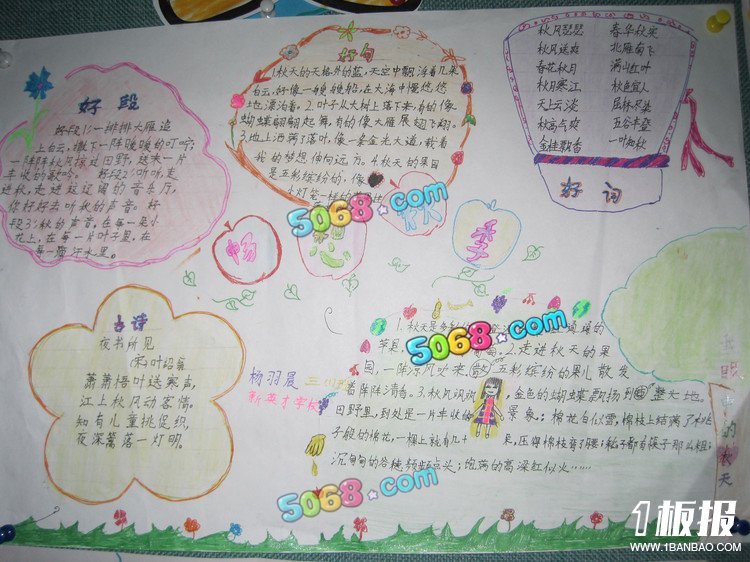 好段
好段1:一排排大雁追
上白云,撒下一阵阵暖暖的叮咛;
一阵阵秋风掠过田野,送来一片
丰收的歌吟。 好段2:听听,走
进秋,走进这辽阔的音乐厅,
你好好去听秋的声音。好
段3:秋的声音,在每一朵小
花上,在每一片叶子里,在
每一颗汗水里。
好句
1.秋天的天格外的蓝,天空中飘浮着几朵
白云,好像一艘艘船,在大海中慢悠悠
地漂泊着。2.叶子从大树上落下来,有的像
蝴蝶翩翩起舞,有的像大雁展翅飞翔。
3.地上洒满了落叶,像一条金光大道,载着
我的梦想伸向远方。4.秋天的果园
是五彩缤纷的,像
灯笼一样的
秋风瑟瑟 春华秋实
秋风送爽 北雁南飞
春花秋月 满山红叶
秋月寒江 秋色宜人
天上云淡 层林尽染
秋高气爽 五谷丰登
金桂飘香 一叶知秋
好词
5068.com
畅
秋天
季
古诗
夜书所见
(宋)叶绍翁
萧萧梧叶送寒声,
江上秋风动客情。
知有儿童挑促织,
夜深篱落一灯明。
杨羽晨 三(1)
新英才学校
5068.com
1.秋天是
苹果, 2.走进秋天的果
园,一阵凉风吹来(散)五彩缤纷的果儿散发
着阵阵清香。3.秋风飒飒,金色的蝴蝶飘扬到整大地。
田野里,到处是一片丰收的景象:棉花白似雪,棉枝上结满了
子般的棉花,一棵上就有几十 ,压得棉枝弯了腰;稻子都有筷子那么粗;
沉甸甸的谷穗频频点头;饱满的高粱红似火……
5068.com
眼中的秋天
1板报
WWW.1BANBAO.COM